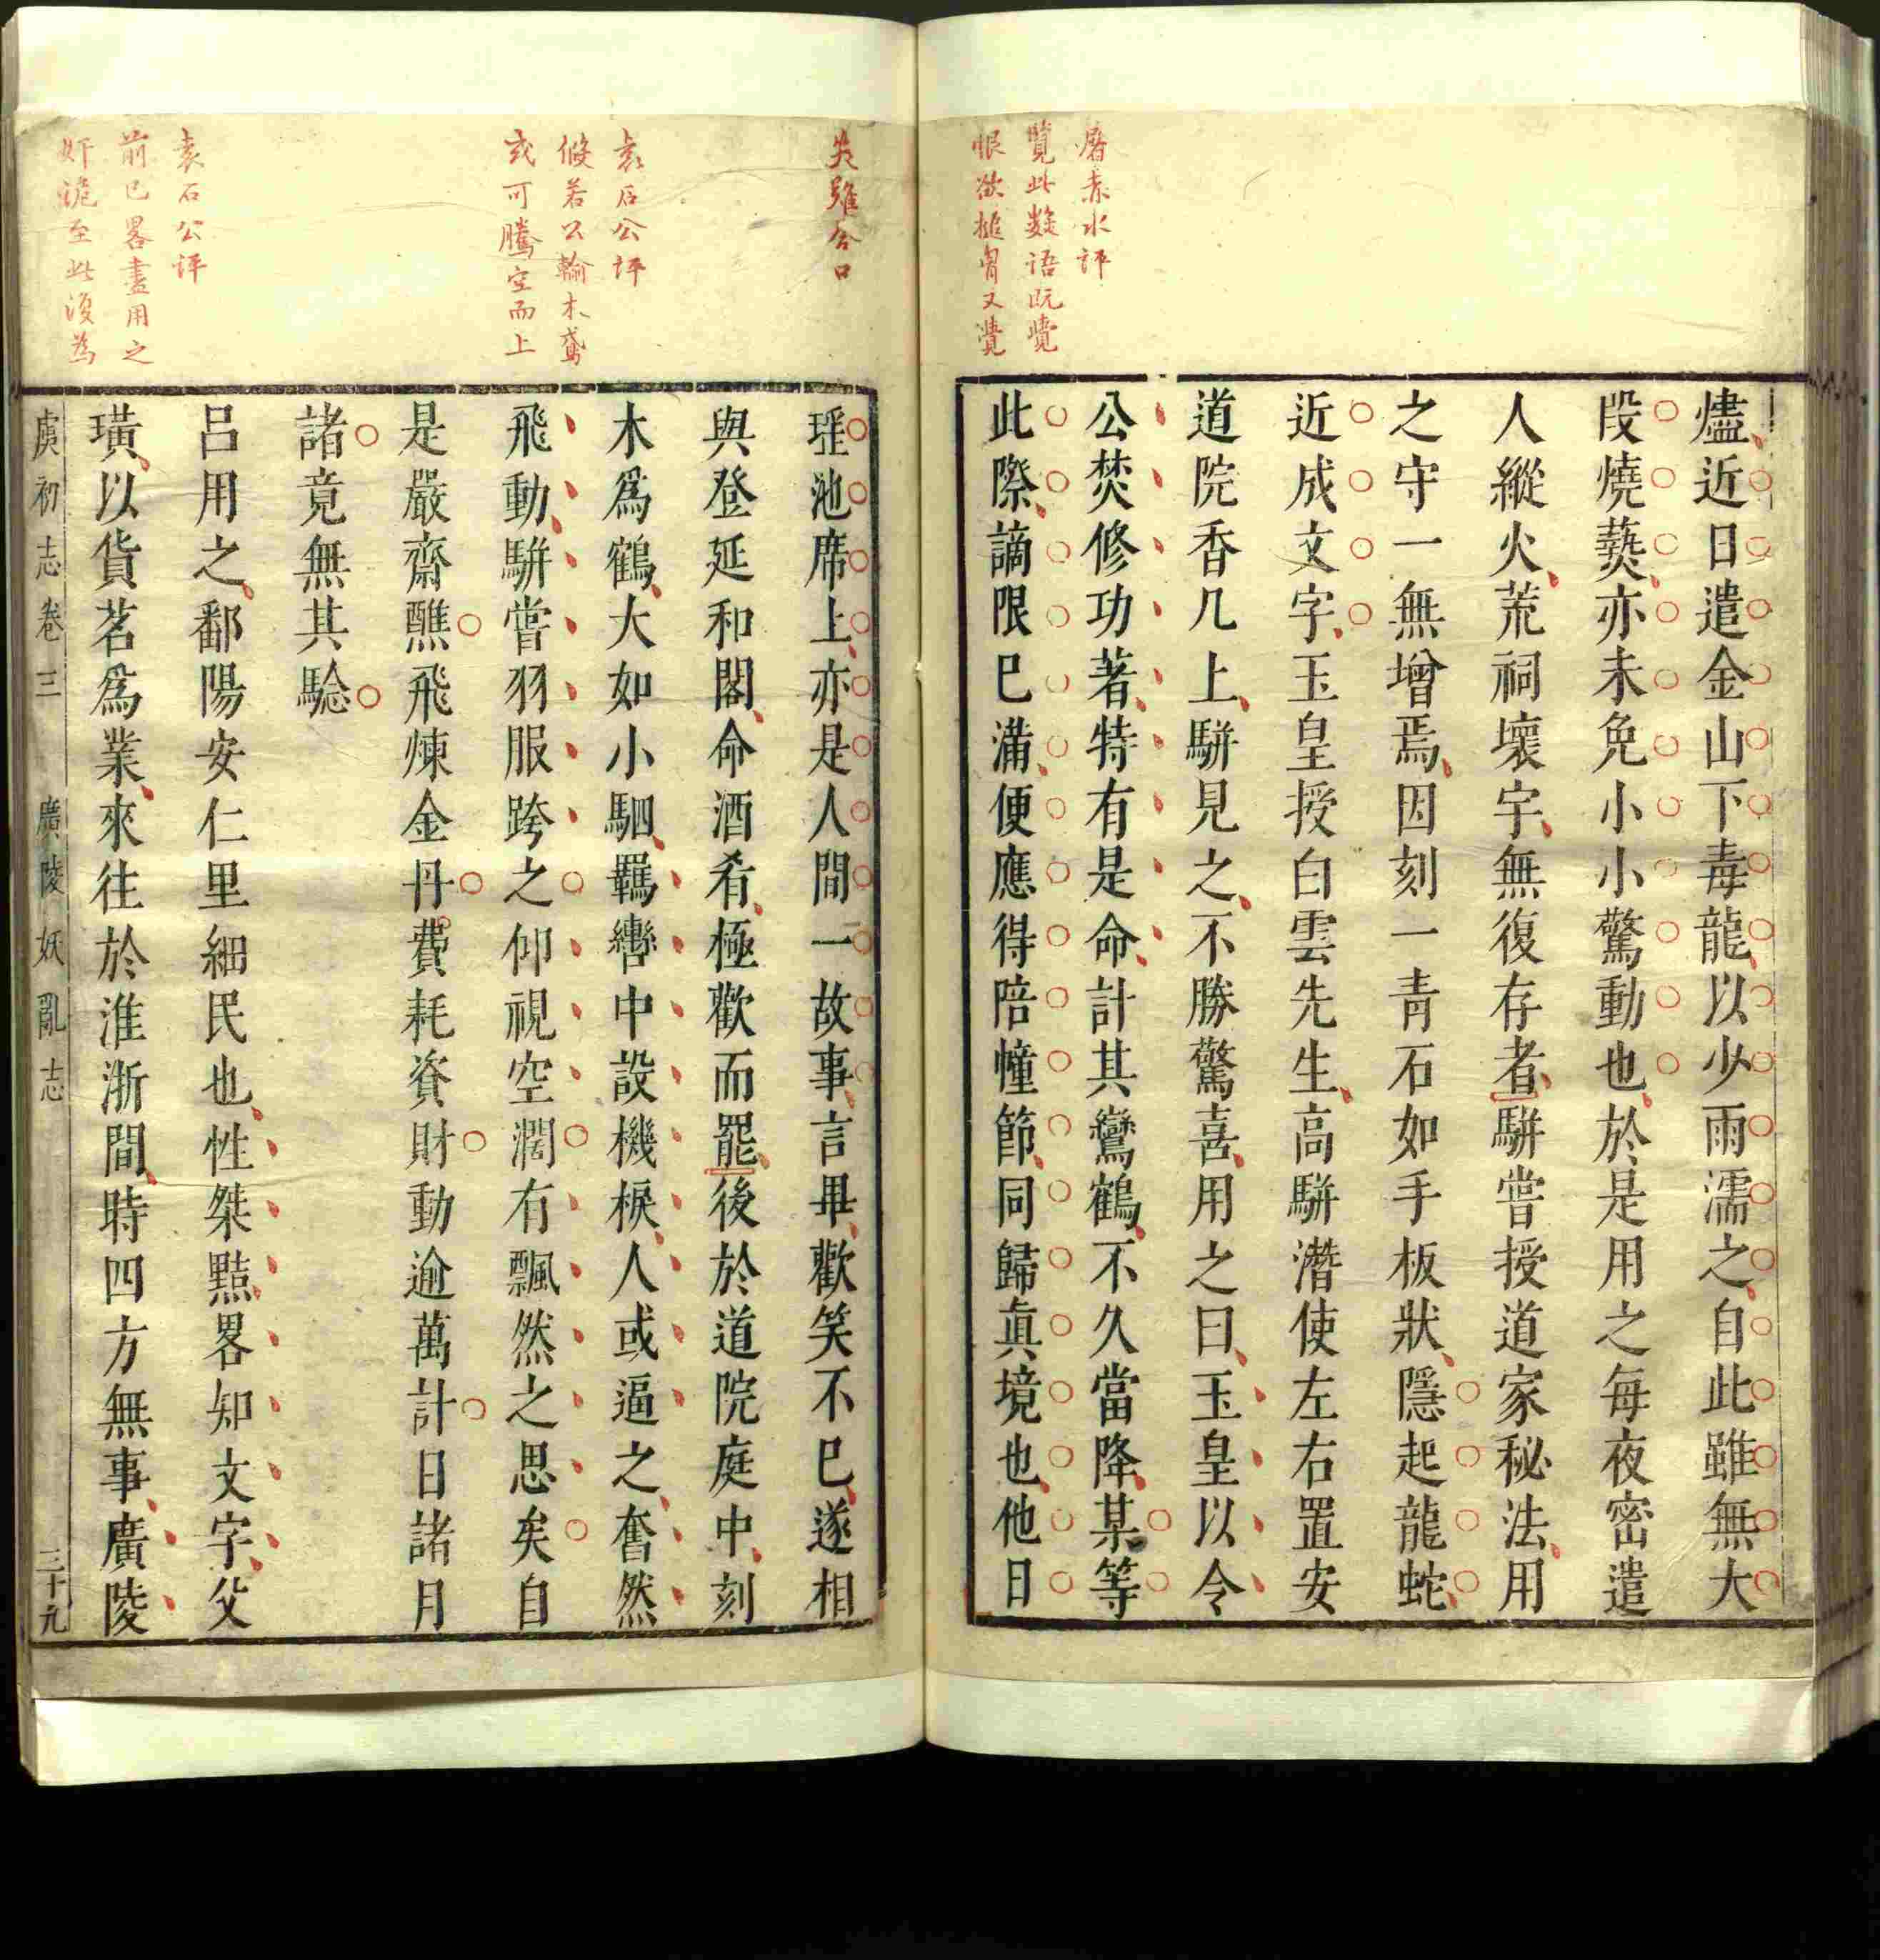 屠赤水評
覽此數語既覺
恨欲搥胷又覺
燼近日遣金山下毒龍以少雨濡之自此雖無大
段燒爇亦未免小小驚動也於是用之每夜密遣
人縱火荒祠壞宇無復存者駢嘗授道家秘法用
之守一無增焉因刻一青石如手板狀隱起龍蛇
近成文字玉皇授白雲先生高駢潛使左右置安
道院香几上駢見之不勝驚喜用之曰玉皇以令
公焚修功著特有是命計其鸞鶴不久當降某等
此際謫限已滿便應得陪幢節同歸眞境也他日
失雖合口
袁石公評
倏若公輸木鳶
或可騰空而上
袁石公評
前已畧盡用之
奸詭至此復爲
瑶池席上亦是人間一故事言畢歡笑不已遂相
與登延和閣命酒肴極歡而罷後於道院庭中刻
木爲鶴大如小駟羈轡中設機棙人或逼之奮然
飛動駢嘗羽服跨之仰視空濶有飄然之思矣自
是嚴齋醮飛煉金丹費耗資財動逾萬計日諸月
諸竟無其騐
呂用之鄱陽安仁里細民也性桀黠畧知文字父
璜以貨茗爲業來往於淮浙間時四方無事廣陵
虞初志卷三 廣陵妖亂志 三十九